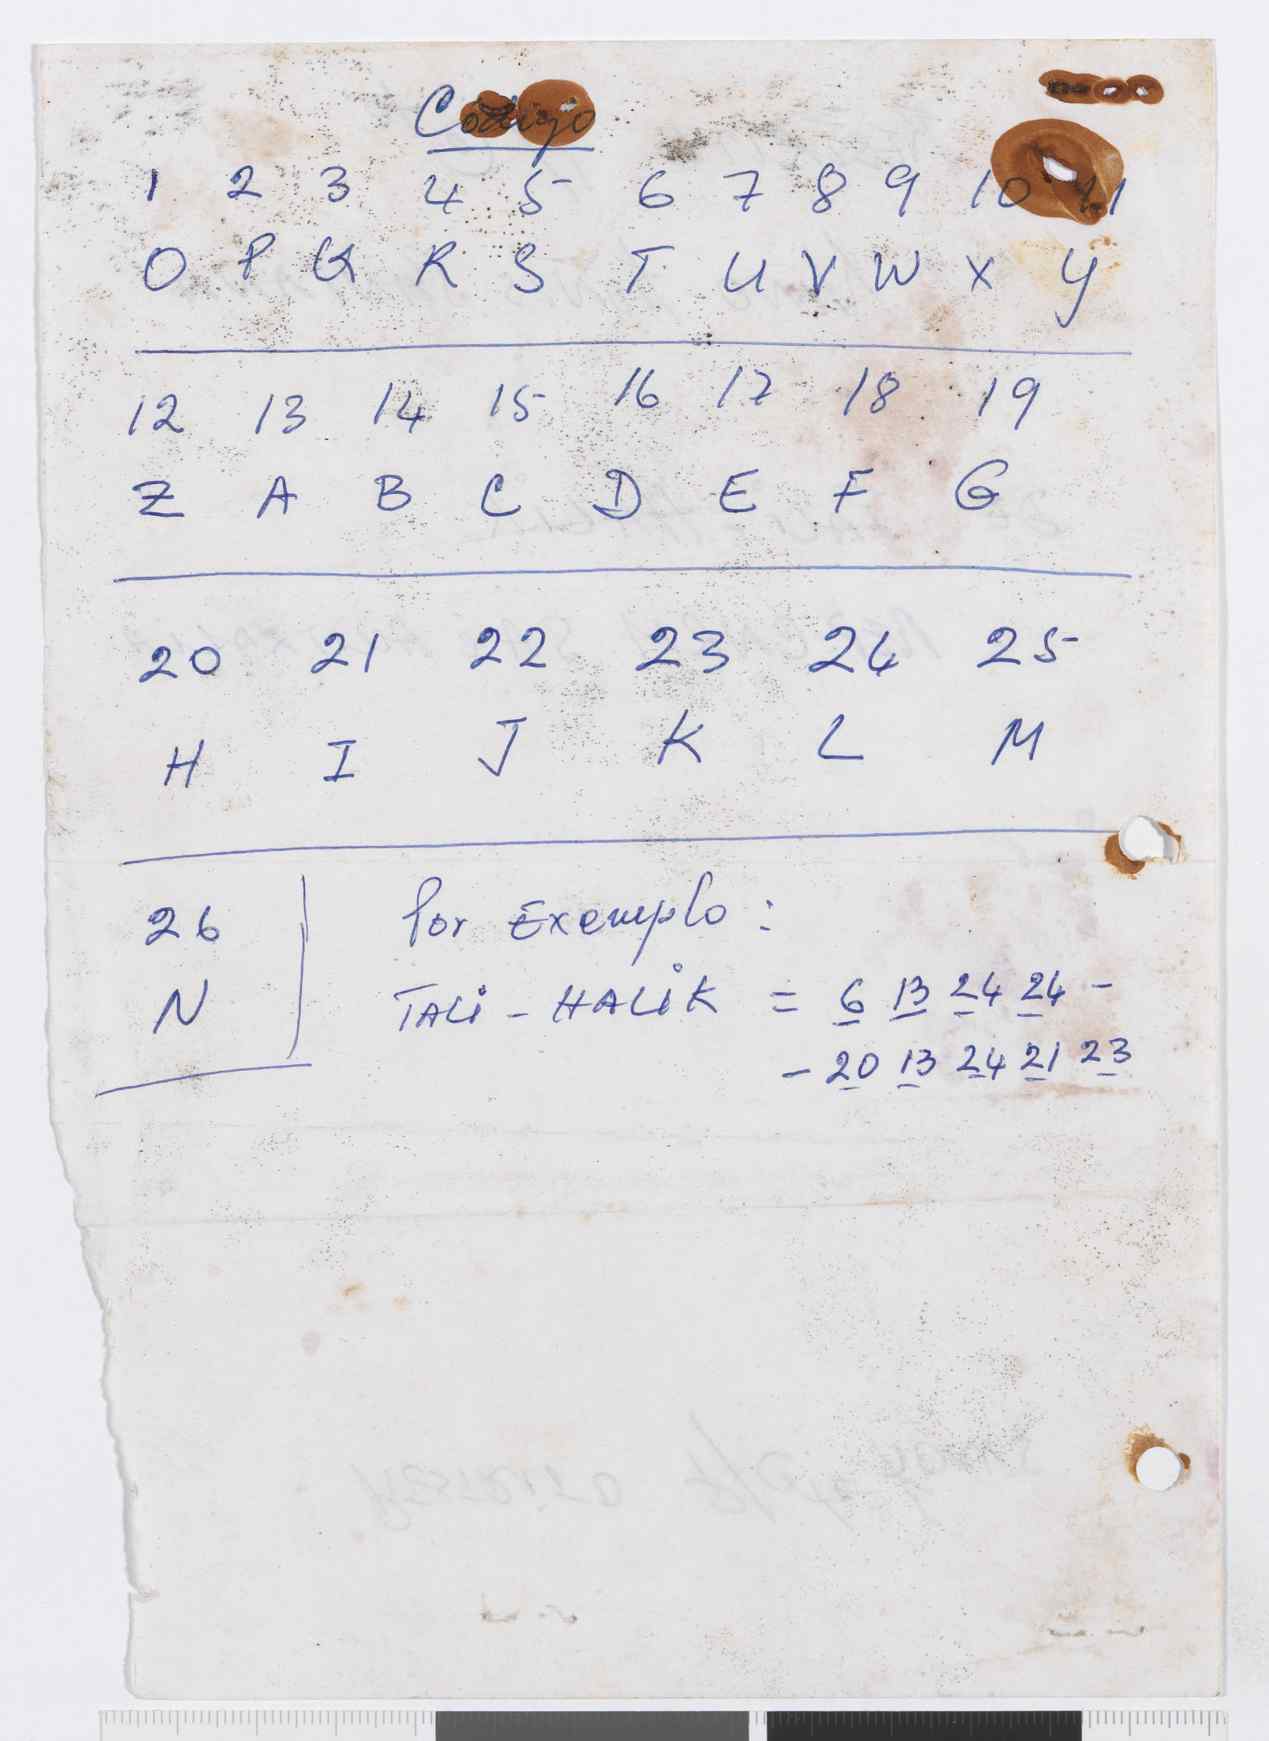 Código
1 2 3 4 5 6 7 8 9 10 11
O P Q R S T U V W X Y
12 13 14 15 16 17 18 19
Z A B C D E F G
20 21 22 23 24 25
H I J K L M
26
N
Por Exemplo:
TALi - HALiK = 6 13 24 24 -
- 20 13 24 21 23